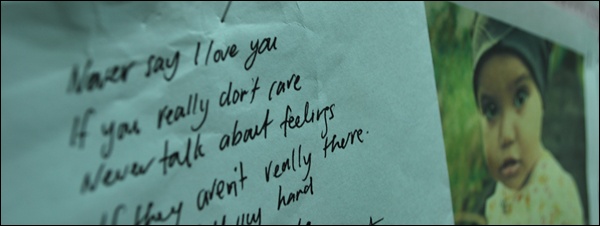 Never say I love you
If you really don't care
Never talk about feelings
If they aren't really there.
hard